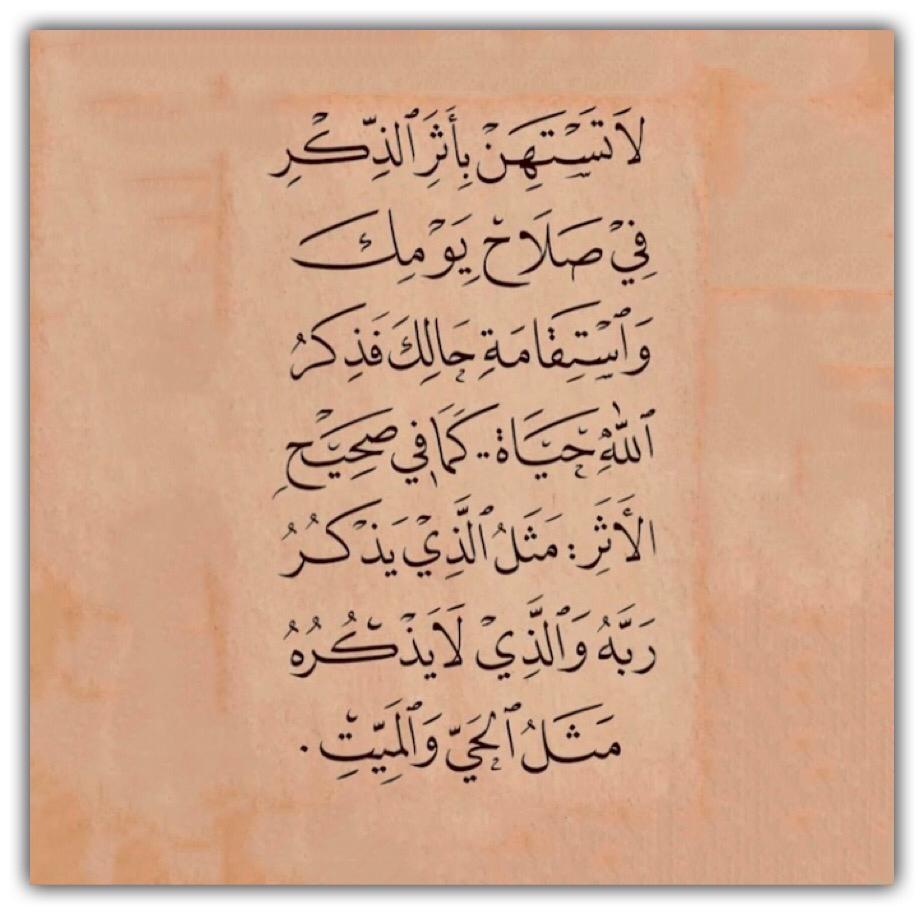 لَا تَسْتَهِنْ بِأَثَرِ ٱلذِّكْرِ
فِيْ صَلَاحْ يَوْمِك
وَٱسْتِقَامَةِ حَالِكَ فَذِكرُ
ٱللَّهِ حَيَاة.. كَمَا في صَحِيْحِ
الأَثَرِ: مَثَلُ ٱلَّذِيْ يَذْكُرُ
رَبَّهُ وَٱلَّذِيْ لَا يَذْكُرُهُ
مَثَلُ ٱلحَيّ وَٱلمَيِّتِ.